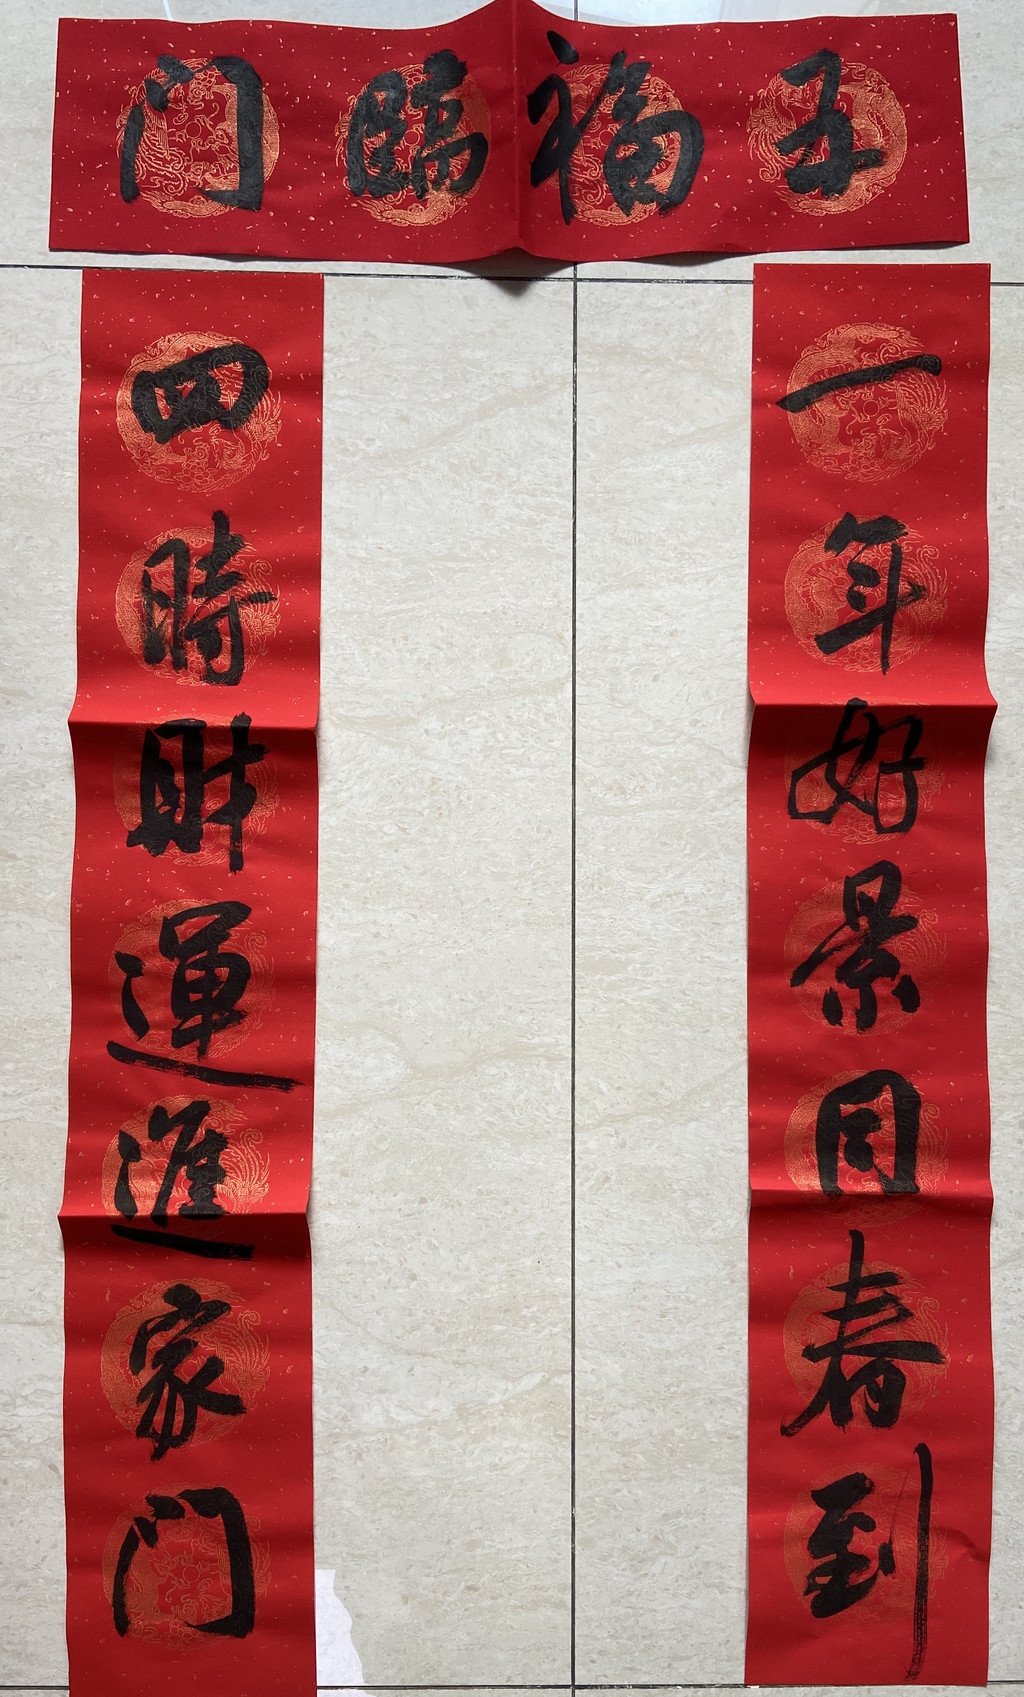 五福臨门
一年好景同春到
四時財運進家门